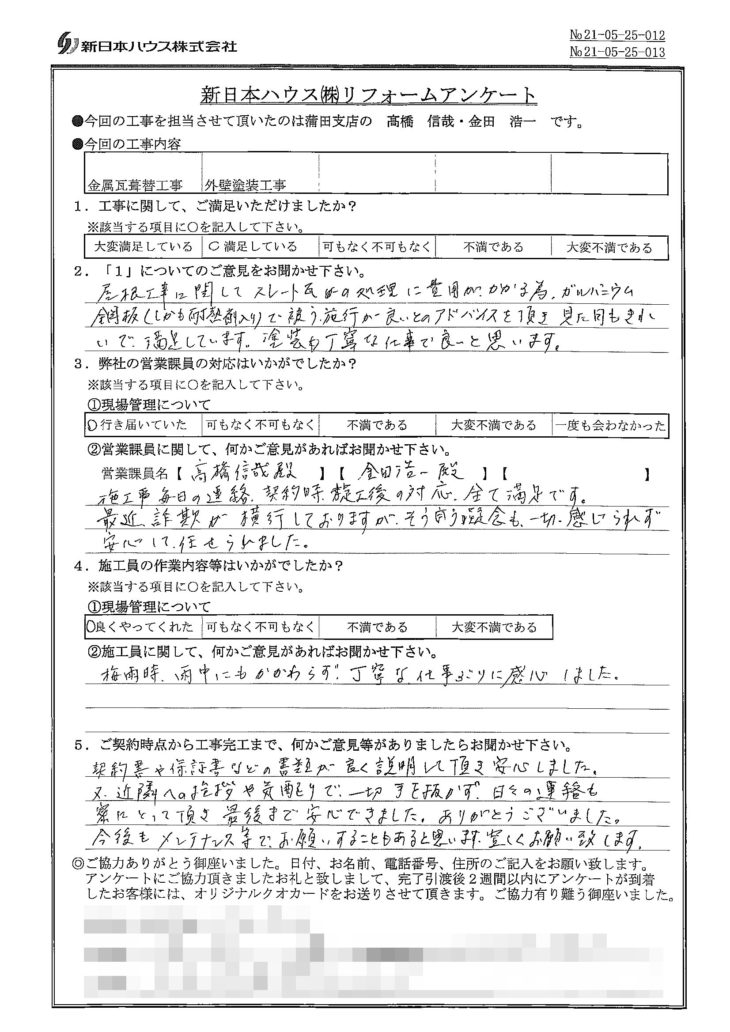 新日本ハウス株式会社
№21-05-25-012
№21-05-25-013
新日本ハウス㈱リフォームアンケート
●今回の工事を担当させて頂いたのは蒲田支店の 髙橋 信哉・金田 浩一 です。
●今回の工事内容
金属瓦葺替工事 外壁塗装工事
1．工事に関して、ご満足いただけましたか？
※該当する項目に○を記入して下さい。
大変満足している ○満足している 可もなく不可もなく 不満である 大変不満である
2．「1」についてのご意見をお聞かせ下さい。
屋根工事に関してスレート瓦の処理に費用がかかる為、ガルバニウム
鋼板(しかも耐熱剤入り)で被う施行が良いとのアドバイスを頂き見た目もきれ
いで、満足しています。塗装も丁寧な仕事で良いと思います。
3．弊社の営業課員の対応はいかがでしたか？
※該当する項目に○を記入して下さい。
①現場管理について
○行き届いていた 可もなく不可もなく 不満である 大変不満である 一度も会わなかった
②営業課員に関して、何かご意見があればお聞かせ下さい。
営業課員名【 高橋信哉殿 】【 金田浩一殿 】【 】
施工事毎日の連絡、契約時、施工後の対応、全て満足です。
最近詐欺が横行しておりますが、そう言う疑念も、一切感じられず
安心して任せられました。
4．施工員の作業内容等はいかがでしたか？
※該当する項目に○を記入して下さい。
①現場管理について
○良くやってくれた 可もなく不可もなく 不満である 大変不満である
②施工員に関して、何かご意見があればお聞かせ下さい。
梅雨時、雨中にもかかわらず、丁寧な仕事ぶりに感心しました。
5．ご契約時点から工事完工まで、何かご意見等がありましたらお聞かせ下さい。
契約書や保証書などの書類が良く説明して頂き安心しました。
又、近隣への挨拶や気配りで、一切手を抜かず、日々の連絡も
密にとって頂き最後まで安心できました。ありがとうございました。
今後もメンテナンス等でお願いすることもあると思います。宜しくお願い致します。
◎ご協力ありがとう御座いました。日付、お名前、電話番号、住所のご記入をお願い致します。
アンケートにご協力頂きましたお礼と致しまして、完了引渡後２週間以内にアンケートが到着
したお客様には、オリジナルクオカードをお送りさせて頂きます。ご協力有り難う御座いました。